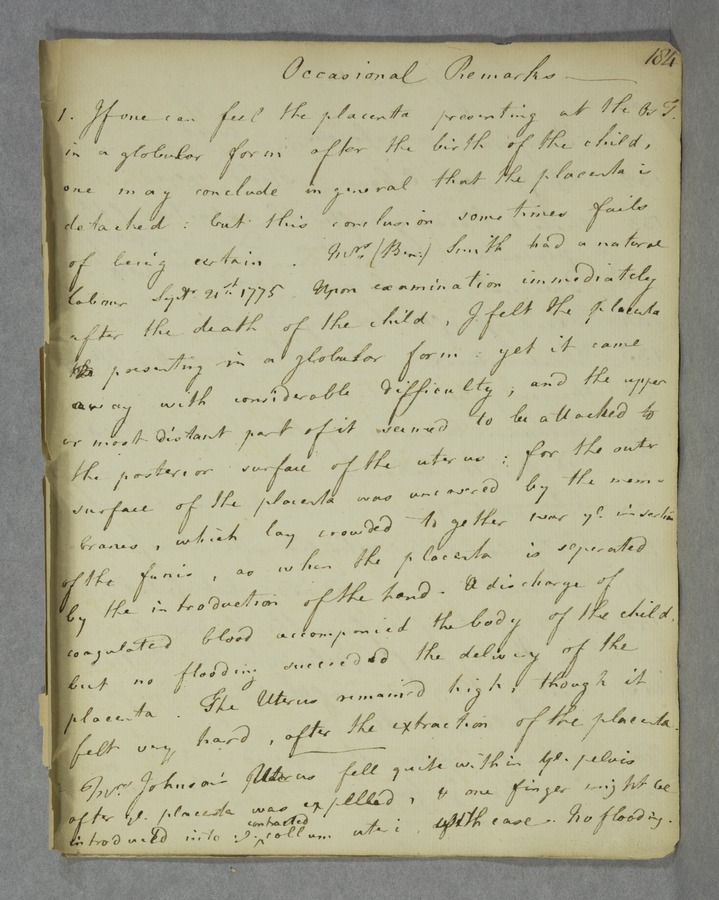 184
Occasional Remarks
1. If one can feel the placenta presenting at the Os T.
in a globular form after the birth of the child,
one may conclude in general that the placenta is
detached : but this conclusion sometimes fails
of being certain . Mrs. (Ben:) Smith had a natural
labour Septr. 21st. 1775. Upon examination immediately
after the death of the child, I felt the placenta
presenting in a globular form : yet it came
away with considerable difficulty ; and the upper
or most distant part of it seemed to be attached to
the posterior surface of the uterus ; for the outer
surface of the placenta was uncovered by the mem-
branes, which lay crowded together near ye. insertion
of the funis, as when the placenta is seperated
by the introduction of the hand. A discharge of
coagulated blood accompanied the body of the child,
but no flooding succeeded the delivery of the
placenta . The Uterus remain'd high, though it
felt very hard, after the extraction of the placenta.
Mrs. Johnson's Uterus fell quite within ye. pelvis
after ye. placenta was expelled, & one finger might be
contracted
introduced into ye. collum uteri with ease. No flooding.